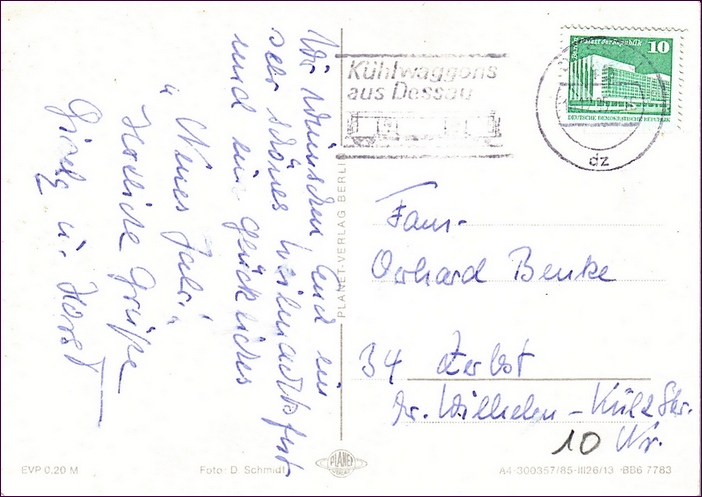 Wir wünschen Euch ein
sehr schönes Weihnachtsfest
und ein glückliches
u Neues Jahr.
Herzliche Grüße
Gisela u. Horst
PLANET-VERLAG BERLIN
Kühlwaggons
aus Dessau
Palast der Republik
10
DEUTSCHE DEMOKRATISCHE REPUBLIK
dz
Fam.
Gerhard Benke
34 Zerbst
Dr. Wilhelm-Külz Str.
10 Nr.
EVP 0,20 M
Foto: D. Schmidt
PLANET
A4-300357/85-III26/13 -BB6 7783